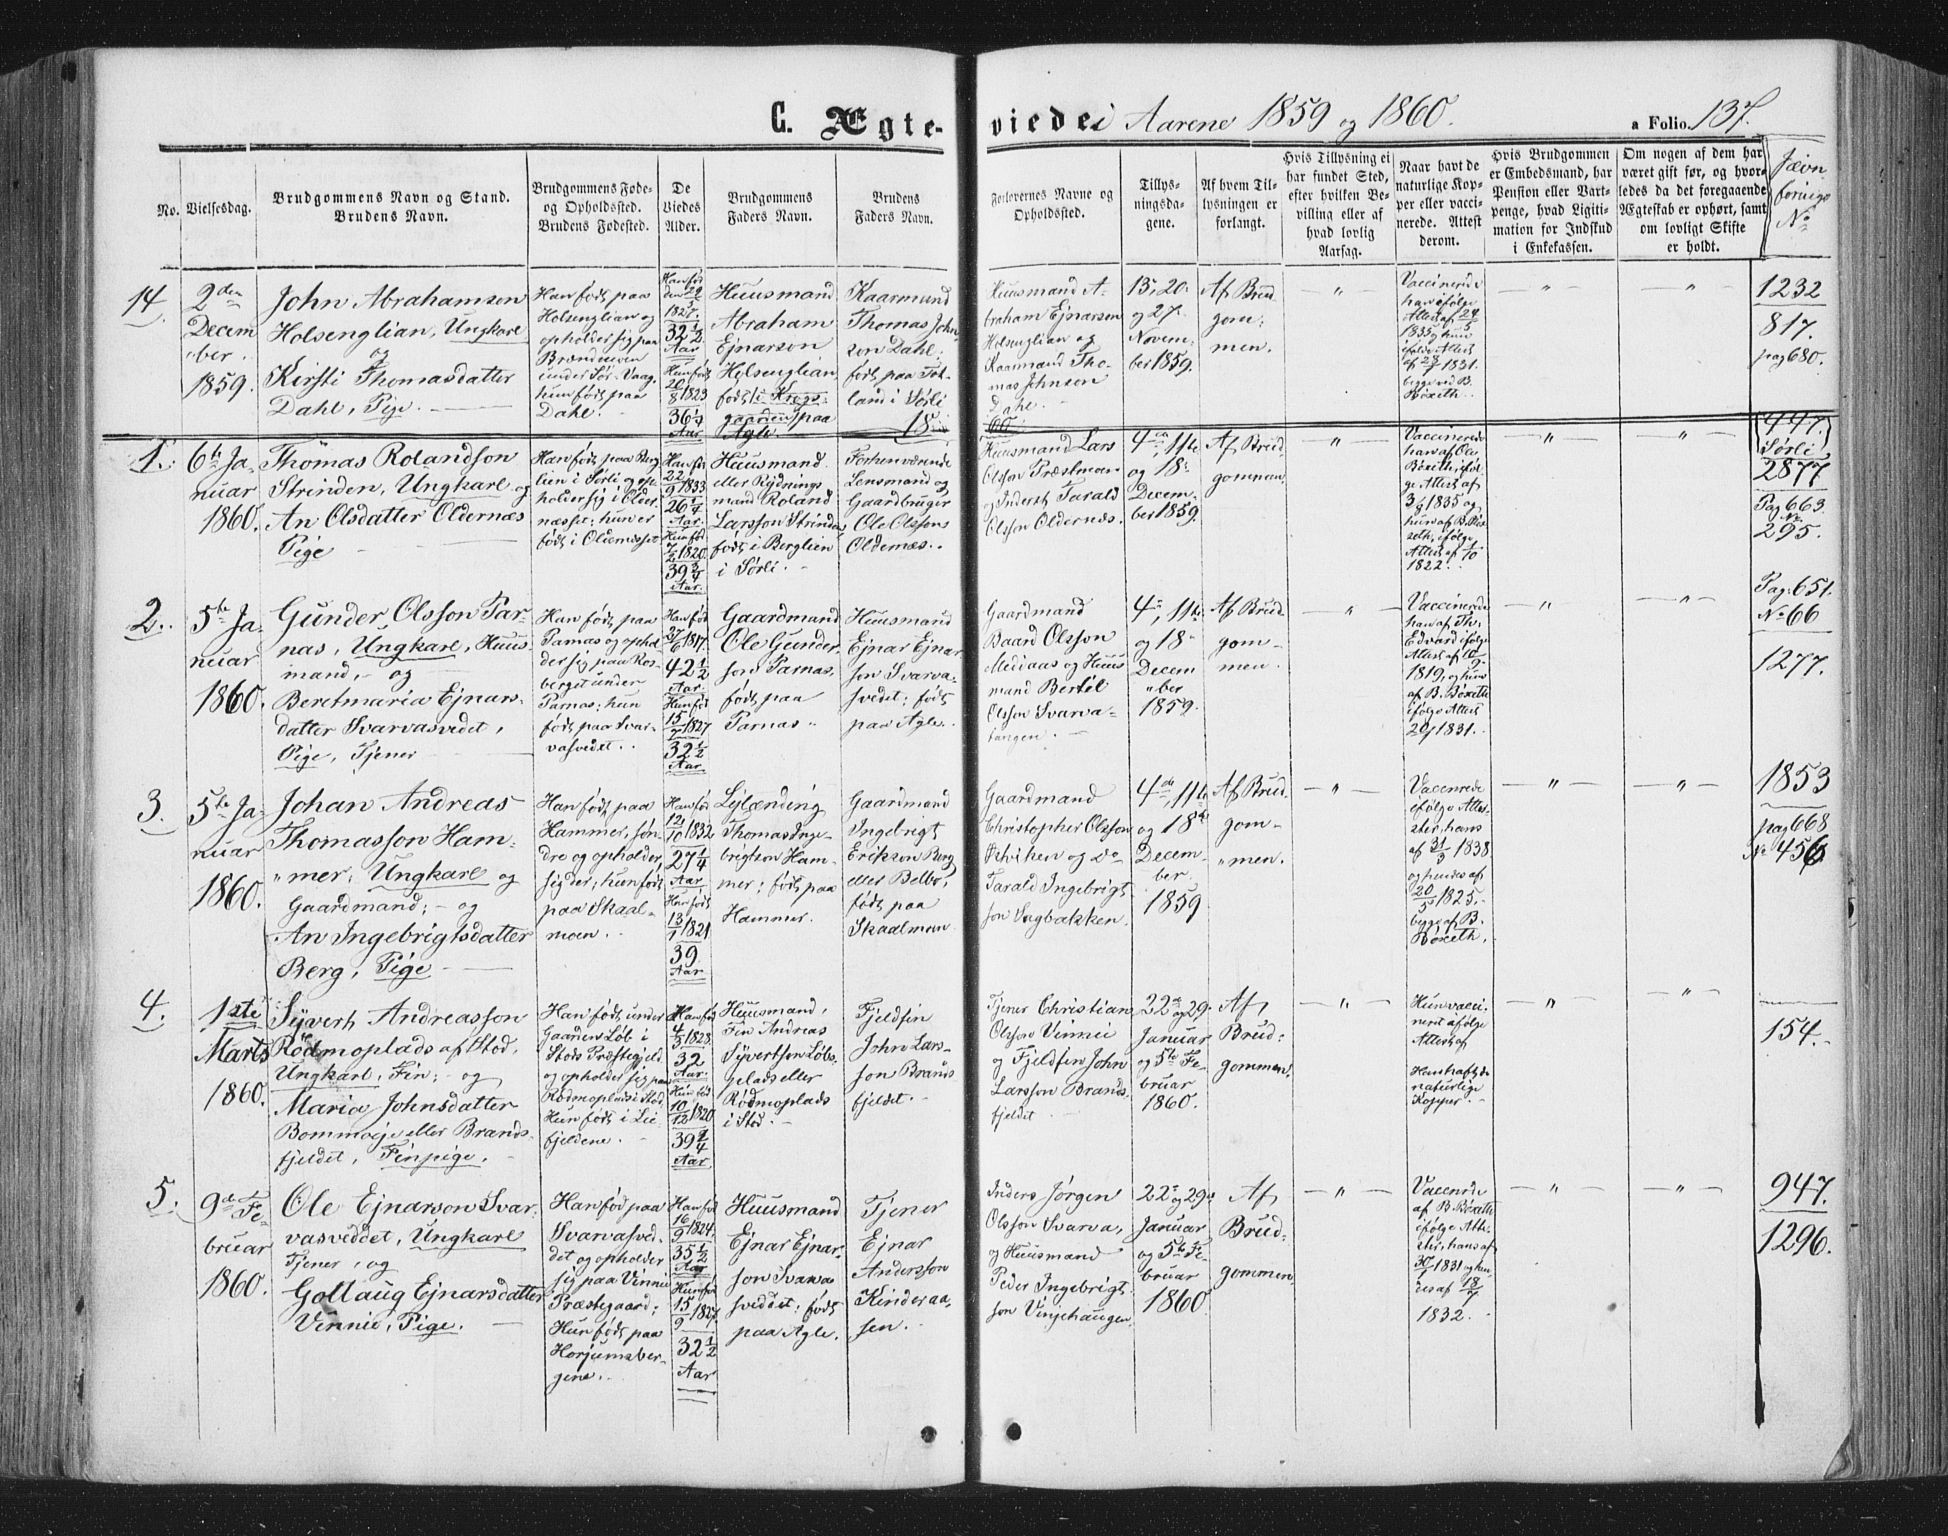 C. Ægte-viede i Aarene 1859 og 1860.
a Folio. 137.
No.
Vielsesdag.
Brudgommens Navn og Stand.
Brudens Navn.
Brudgommens Føde-
og Opholdssted.
Brudens Fødested.
De
Viedes
Alder.
Brudgommens
Faders Navn.
Brudens
Faders Navn.
Forlovernes Navne og
Opholdssted.
Tillys-
ningsda-
gene.
Af hvem Til-
lysningen er
forlangt.
Hvis Tillysning ei
har fundet Sted,
efter hvilken Be-
villing eller af
hvad lovlig
Aarsag.
Naar havt de
naturlige Kop-
per eller vacci-
nerede. Attest
derom.
Hvis Brudgommen
er Embedsmand, har
Pension eller Vart-
penge, hvad Ligiti-
mation for Indskud
i Enkekassen.
Om nogen af dem har
været gift før, og hvor-
ledes da det foregaaende
Ægteskab er ophørt, samt
om lovligt Skifte
er holdt.
Jævn
førings
No
14.
2den
Decem
ber.
1859.
John Abrahamson
Holsenglian, Ungkarl
og
Kirsti Thomasdatter
Dahl, Pige.
Han født paa
Holsenglian og
opholder sig paa
Brændmoen
under Sør-Vaag,
hun født paa
Dahl.
Han fød
1827.
32 1/2
Aar
Hun født
20/8 1823
36 1/4
Aar
Huusmand
Abraham
Ejnarson
Holsenglian,
født i Krogs-
gaarden paa
Agle.
Kaarmand
Thomas John-
son Dahl;
født paa
land i Sørli
Huusmand A-
braham Ejnarson
Holsenglian og
Kaarmand Tho-
mas Johnson
Dahl.
13, 20.
og 27.
Novem-
ber 1859.
Af Brud
gom-
men.
Vaccinerede
han ifølge
Attest af 24/5
1835 og hun
ifølge Attest
af 28/7 1831.
begge ved B.
Böxeth.
1232
817.
pag 680.
1.
6te Ja-
nuar
1860.
Thomas Rolandson
Strinden, Ungkarl og
An Olsdatter Oldernæs
Pige
Han født paa Berg
lien i Sørli og op-
holder sig i Older-
næsset; hun er
født i Oldernæsset
Han fød
22/9 1833
26 1/4
Aar.
Hun fød
1820.
39 3/4
Aar.
Huusmand
eller Rydnings
mand Roland
Larsson Strinden
født i Berglien
i Sørli.
Forhenværende
Lensmand og
Gaardbruger
Ole Olsson
Oldernæs.
Huusmand Lars
Olsson Præstmoen
og Inderst Tarald
Olsson Oldernæs.
4de, 11te
og 18.
Decem-
ber 1859.
Af Brud
gommen
Vaccinerede
han af Ole
Böxeth iføl-
ge Attest af
1835 og
hun af B. Böx
eth, ifølge
Attest af 1/10
1822.
(447.)
Sørli
2877
Pag 663.
No
295.
2.
5te Ja-
nuar
1860.
Gunder Olsson Par-
nas, Ungkarl, Huus-
mand, og
Beretmaria Ejnars-
datter Svarvasvedet,
Pige, Tjener
Han født paa
Parnas og ophol
der sig paa Ros-
berget under
Parnas; hun
født paa Svar-
vasvedet.
Han fød
1817.
42 1/2
Aar
Hun fød
15/7 1827
32 1/2
Aar.
Gaardmand
Ole Gunder-
son Parnas,
født paa
Parnas
Huusmand
Ejnar Ejnar
son Svarva-
svedet; født
paa Agle.
Gaardmand
Baard Olsson
Mediaas og Huus
mand Bertil
Olsson Svarva-
tangen.
4de, 11te
og 18
Decem
ber
1859.
Af Brud
gom-
men.
Vaccinerede
han af Th.
Edvard ifølge
Attest af
1819, og hun
af B. Böxeth
ifølge Attest
1831.
Pag. 651.
No 66
1277.
3.
5te Ja-
nuar
1860.
Johan Andreas
Thomasson Ham-
mer; Ungkarl og
Gaardmand; og
An Ingebrigtsdatter
Berg, Pige
Han født paa
Hammer, søn-
dre og opholder
sig der; hun født
paa Skaal-
moen.
Han fød
12/10 1832.
27 1/4
Aar
Hun født
13/1 1821
39.
Aar
Lejlænding
Thomas Inge-
brigtson Ham-
mer; født paa
Hammer.
Gaardmand
Ingebrigt
Erikson Berg
eller Belbo,
født paa
Skaalmoen
Gaardmand
Christopher Olsson
og do
Tarald Ingebrigt
son Sagbakken.
4de, 11te
og 18de
Decem-
ber.
1859
Af Brud.
gom-
men.
Vaccnrede
ifølge Atte-
ster, hans
af 31/3 1838
og hendes af
20/5 1825.
begge af B.
Böxeth.
1853
pag 668
No 456
4.
1ste
Marts
1860.
Syvert Andreasson
Rødmoplads af Stod,
Ungkarl, Fin; og
Maria Johnsdatter
eller Brands-
fjeldet, Finpige.
Han født under
Gaarden Løb i
Stods Præstegjeld
og opholder sig paa
Rødmoplads i Stod.
Hun født i Lie
fjeldene.
Han fød
4/5 1828.
32
Aar.
Hun fød
10/12 1820.
39 2/4
Aar
Huusmand,
Fin Andreas
Syvertson Løbs-
eller
Rødmoplads
i Stod.
Fjeldfin
John Lars-
son Brands
fjeldet.
Tjener Christian
Olsson Vinnie
og Fjeldfin John
Larsson Brands.
fjeldet
22de og 29.
Januar
og 5te Fe-
bruar
1860.
Af
Brud-
gommen.
Hun vacci-
neret ifølge
Attest af
Han haft de
naturlige
Kopper.
154.
5.
9de Fe-
bruar
1860.
Ole Ejnarson Svar-
vasveddet, Ungkarl
Tjener, og
Gollaug Ejnarsdatter
Vinnie, Pige.
Han fød paa
Svarvasved-
det og opholder
sig paa Vinnie
Præstegaard;
Hun født paa
Horjumsber-
gene.
Han fød
16/9 1824.
35 1/2
Aar
Hun fød
15/9 1827.
32 1/2
Aar
Huusmand
Ejnar Ejnar-
son Svarva
sveddet; født
paa Agle.
Tjener
Ejnar
Andersson
Kinderaa-
sen.
Inders Jørgen
Olsson Svarva,
og Huusmand
Peder Ingebrigt-
son Vinjehaugen.
22de og 29de
Januar
og 5te Fe-
bruar
1860.
Af
Brud-
gommen
Vaccnrede
af B. Böxeth
ifølge Atte-
ster, hans af
1831 og hen-
des af 18/7
1832.
947.
1296.